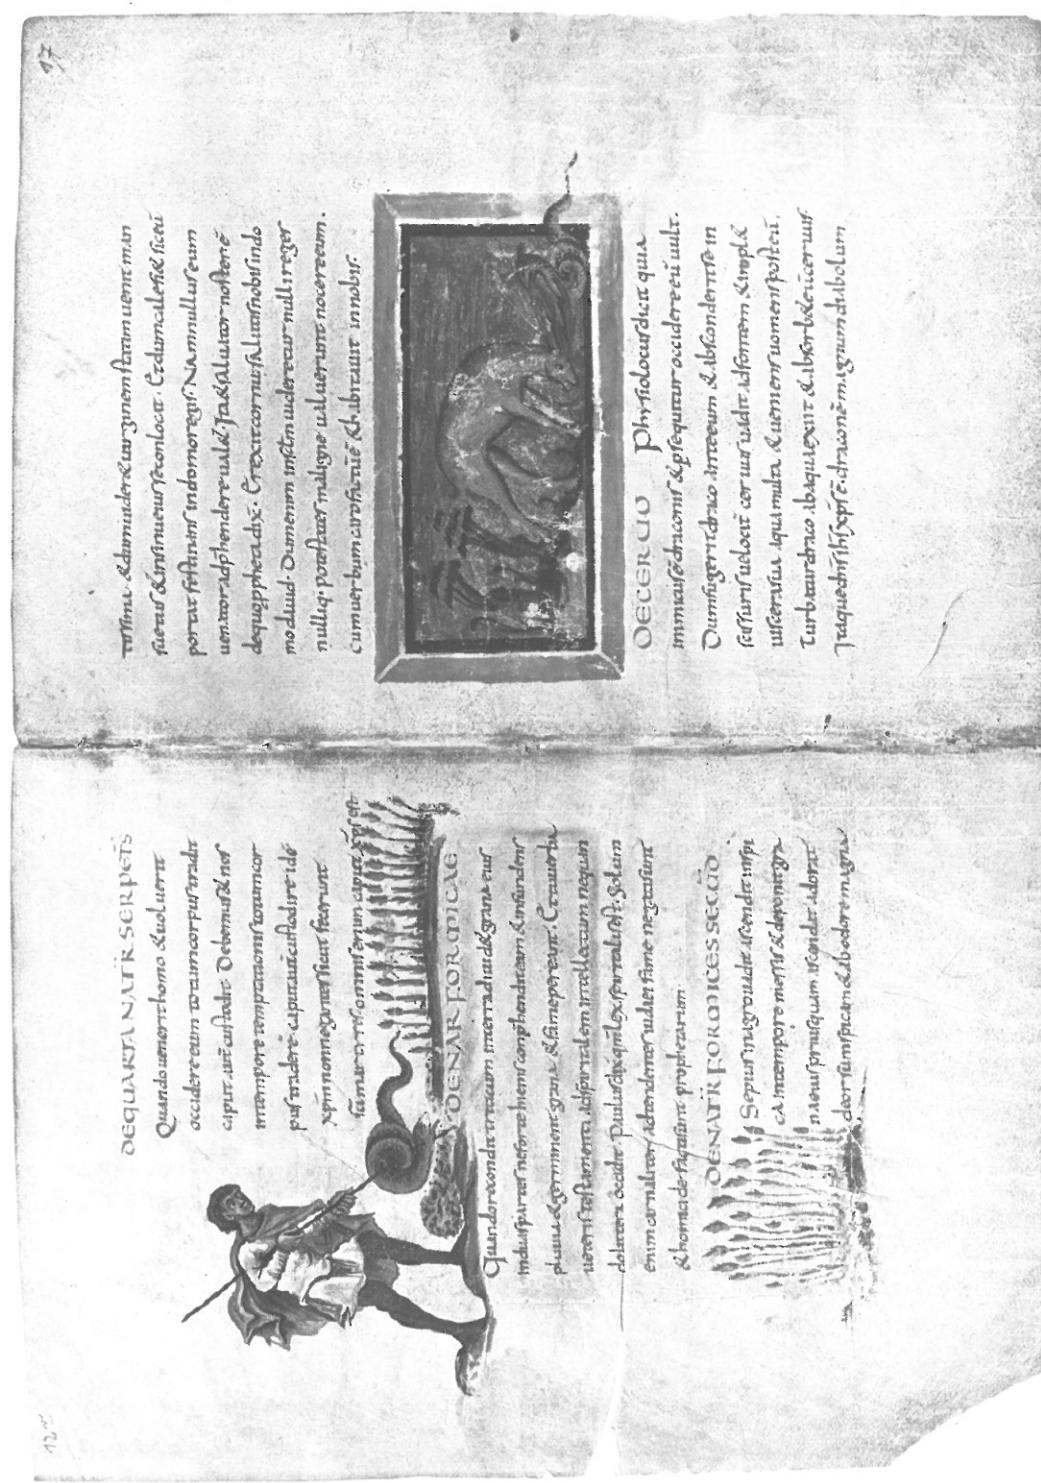 12v
DE QUARTA NATŪR SERPETIS
Quando uenerit homo & uoluerit
occidere eum totum corpus tradit
caput aut̄ custodit. Debemus & nos
in tempore temptationis totum cor
pus tradere caput aut̄ custodire idē
xp̄m non negantes sicut fecerunt
sc̄i martyres omnis enim caput xp̄s est
DE NAR FORMICAE
Quando recondit triticum in terra diuid& grana eius
in duas partes ne forte hiems conphendat eam & infundens
pluuia & germinent grana & fame pereunt. Et tu uerba
ueteris testamenti ad spiritalem intellectum ne quan
do littera occidat Paulus dix̄ qm̄ lex spiritalis est. Solum
enim carnaliter adtendentes iudaei fame necati sunt
& homicidae facti sunt prophetarum
DE NATŪR FORMICES SECŪD
Sepius in agro uadit ascendit in spi
cā in tempore messis & deponit gra
na eius priusquam ascendat adorat
deorsum spicam & ab odore magna
17
tissima & diuinider& uirginem statim uenit man
suetus & in sinu eius se conlocat. Et dum calefit & siceū
portat festinans in domo regis. Nam nullus eum
uenator adphendere ual&. Ita & saluator noster ē
de quo ppheta dix̄. Erexit cornu salutis nobis in do
mo dauid. Dum enim in st̄m uideretur nulli reger
nulliq. potestates maligne ualuerunt nocere eum.
cum uerbum caro factū ē & habitauit in nobis.
DE CERUO Phisiolocus dicit quia
inimicus ē draconis & p̄sequitur occidere eū uult.
Dum fugerit draco ante eum & abscondens se in
scissuris uelocit̄ ceruus uadit ad fontem & impl&
uiscera sua aqua multa & ueniens uomens post eū.
turbatur draco ab aqua exiit & absorb& eū ceruus.
Itaque dn̄s ih̄s xp̄s ē. draconē magnum diabolum